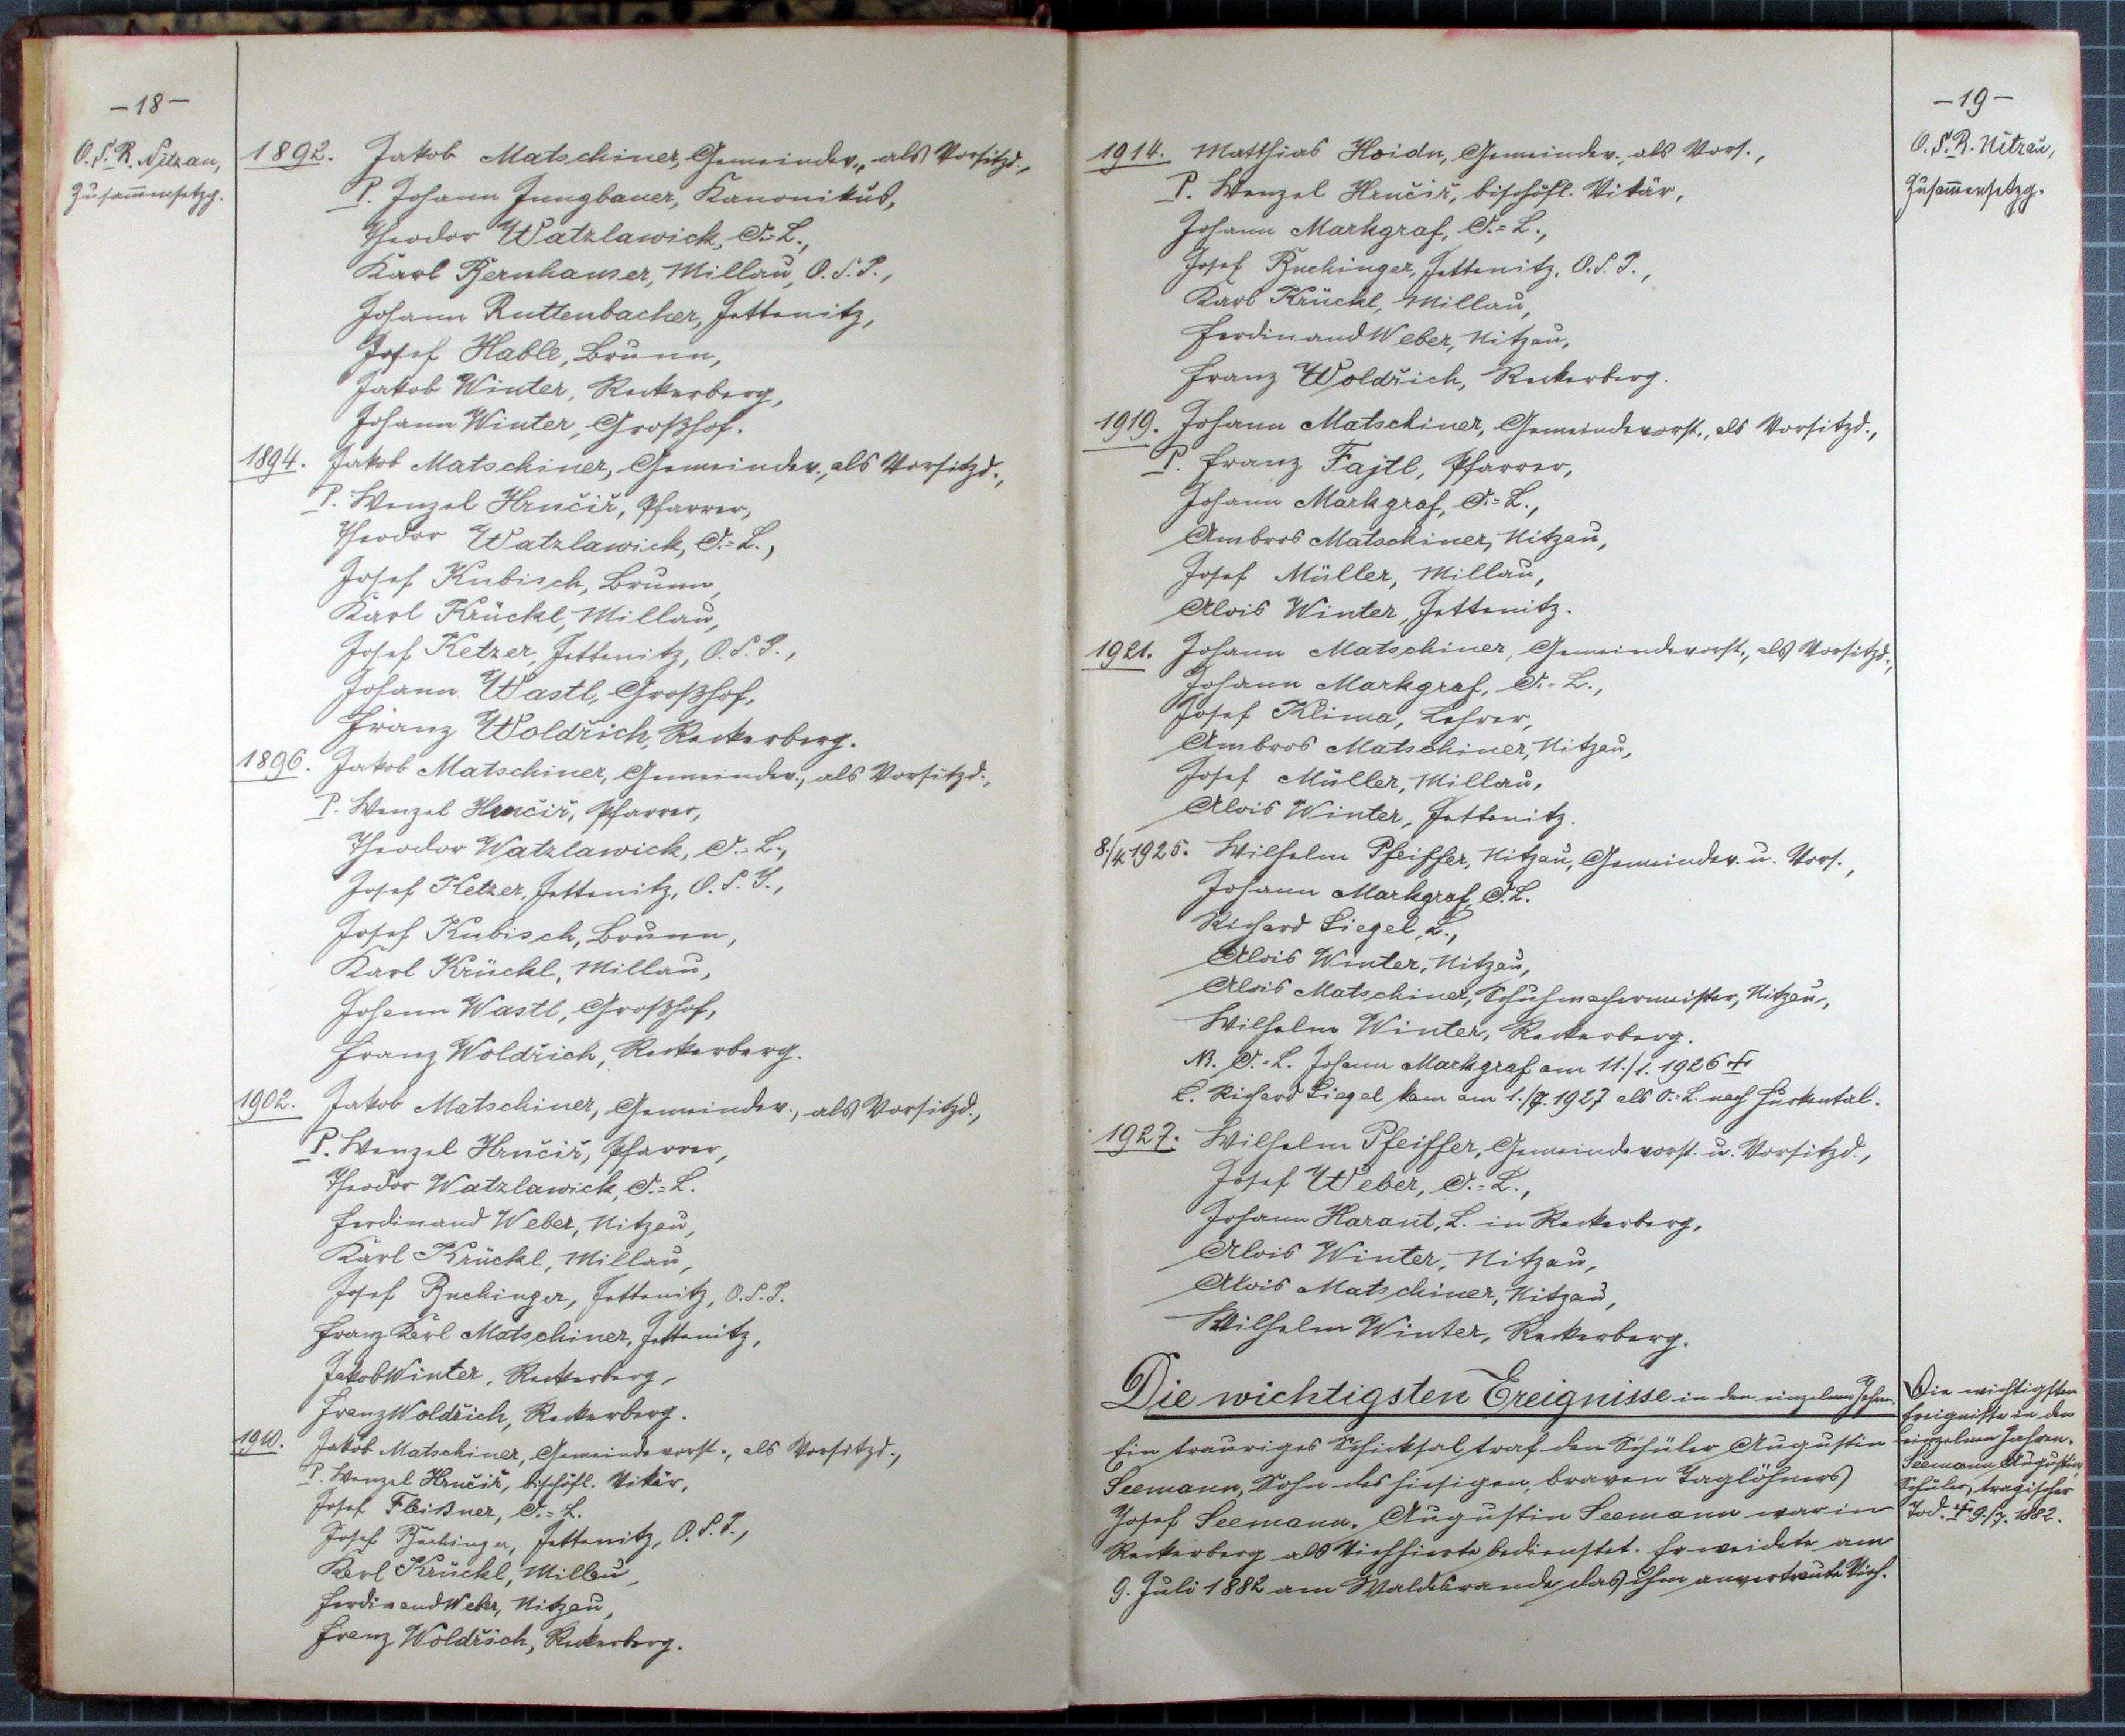 -18-
O.S.R. Nitzau,
Zusammensetzg.
1892. Jakob Matschiner, Gemeindev., als Vorsitzd.,
P. Johann Jungbauer, Kanonikus,
Theodor Watzlawick, O.=L.,
Karl Bernhauser, Millau, O.S.I.,
Johann Ruttenbacher, Jettenitz,
Josef Hable, Brunn,
Jakob Winter, Reckerberg,
Johann Winter, Großhof.
1894. Jakob Matschiner, Gemeindev., als Vorsitzd.,
P. Wenzel Hrnčiř, Pfarrer,
Theodor Watzlawick, O.=L.,
Josef Kubisch, Brunn,
Karl Krückl, Millau,
Josef Ketzer, Jettenitz, O.S.I.,
Johann Wastl, Großhof,
Franz Woldřich, Reckerberg.
1896. Jakob Matschiner, Gemeindev., als Vorsitzd.,
P. Wenzel Hrnčiř, Pfarrer,
Theodor Watzlawick, O.=L.,
Josef Ketzer, Jettenitz, O.S.I.,
Josef Kubisch, Brunn,
Karl Krückl, Millau,
Johann Wastl, Großhof,
Franz Woldřich, Reckerberg.
1902. Jakob Matschiner, Gemeindev., als Vorsitzd.,
P. Wenzel Hrnčiř, Pfarrer,
Theodor Watzlawick, O.=L.
Ferdinand Weber, Nitzau,
Karl Krückl, Millau,
Josef Buchinger, Jettenitz, O.S.I.
Franz Karl Matschiner, Jettenitz,
Jakob Winter, Reckerberg,
Franz Woldřich, Reckerberg.
1910. Jakob Matschiner, Gemeindevorst., als Vorsitzd.,
P. Wenzel Hrnčiř, bischöfl. Vikär,
Josef Fleißner, O.=L.
Josef Buchinger, Jettenitz, O.S.I.,
Karl Krückl, Millau,
Ferdinand Weber, Nitzau,
Franz Woldřich, Reckerberg.
-19-
O.S.R. Nitzau,
Zusammensetzg.
1914. Matthias Hoidn, Gemeindev., als Vors.,
P. Wenzel Hrnčiř, bischöfl. Vikär,
Johann Markgraf, O.=L.,
Josef Buchinger, Jettenitz, O.S.I.,
Karl Krückl, Millau,
Ferdinand Weber, Nitzau,
Franz Woldřich, Reckerberg.
1919. Johann Matschiner, Gemeindevorst., als Vorsitzd.,
P. Franz Fajtl, Pfarrer,
Johann Markgraf, O.=L.,
Ambros Matschiner, Nitzau,
Josef Müller, Millau,
Alois Winter, Jettenitz.
1921. Johann Matschiner, Gemeindevorst., als Vorsitzd.,
Johann Markgraf, O.=L.,
Josef Klima, Lehrer,
Ambros Matschiner, Nitzau,
Josef Müller, Millau,
Alois Winter, Jettenitz.
8./4. 1925. Wilhelm Pfeiffer, Nitzau, Gemeindev. u. Vors.,
Johann Markgraf, O.L.
Richard Siegel, L.,
Alois Winter, Nitzau,
Alois Matschiner, Schuhmachermeister, Nitzau,
Wilhelm Winter, Reckerberg.
NB. O.=L. Johann Markgraf am 11./1. 1926 †
L. Richard Siegel kam am 1./9. 1927 als O.=L. nach Hurkental.
1927. Wilhelm Pfeiffer, Gemeindevorst. u. Vorsitzd.,
Josef Weber, O.=L.,
Johann Harant, L. in Reckerberg,
Alois Winter, Nitzau,
Alois Matschiner, Nitzau,
Wilhelm Winter, Reckerberg.
Die wichtigsten Ereignisse in den einzelnen Jahren.
Ein trauriges Schicksal traf den Schüler Augustin
Seemann, Sohn des hiesigen, braven Taglöhners
Josef Seemann. Augustin Seemann war in
Reckerberg als Viehhirte bedienstet. Er weidete am
9. Juli 1882 am Waldesrande das ihm anvertraute Vieh.
Die wichtigsten
Ereignisse in den
einzelnen Jahren.
Seemann Augustin,
Schüler, tragischer
Tod. † 9./7. 1882.